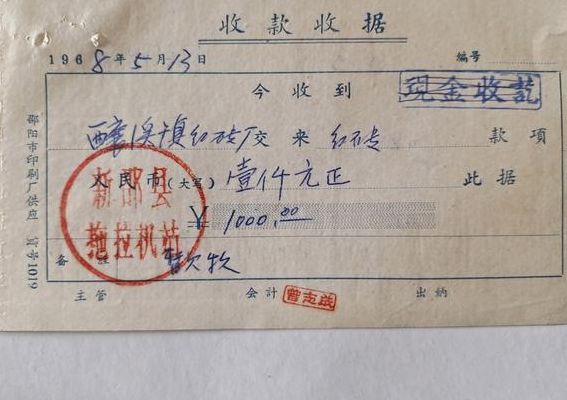 收款收据
1968年5月13日 编号
今收到 现金收訖
酿溪镇红砖厂交来 红砖 款項
人民币(大写) 壹仟元正 此据
¥ 1000.00
备註 暂欠收
新邵县
拖拉机站
主管 会計 曾志成 出納
邵阳市印刷厂供应 貢号1019